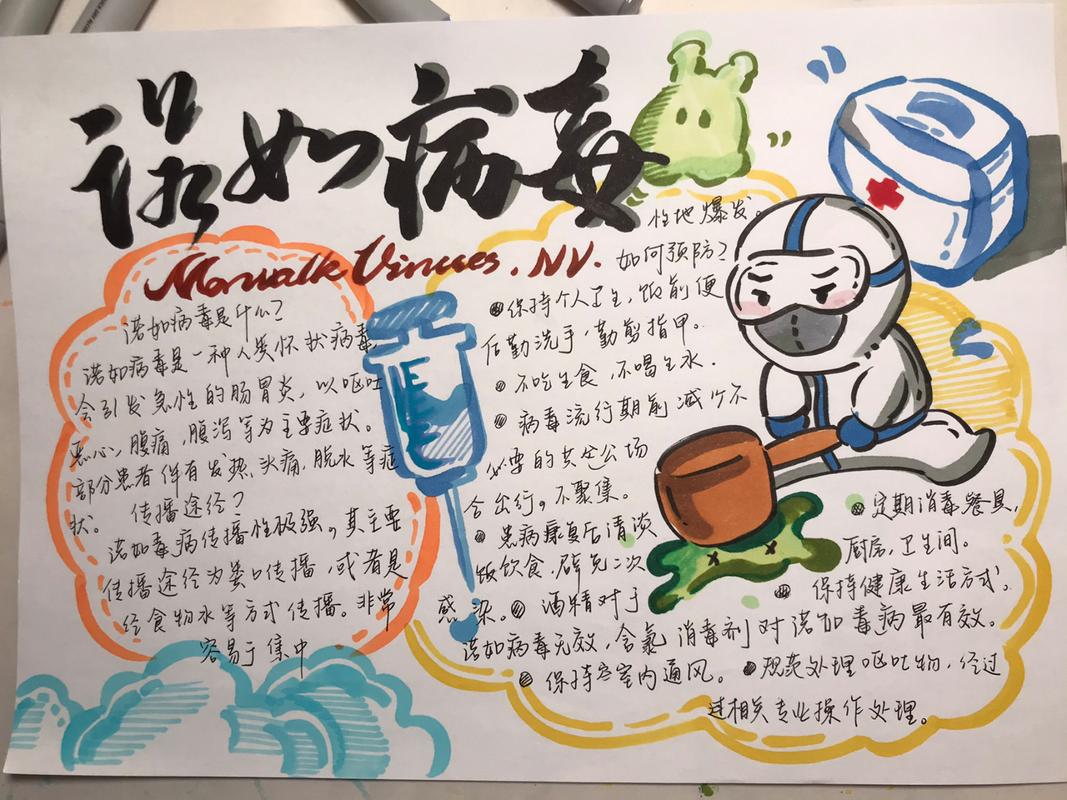 诺如病毒
Morwalk Viruces. NV.
诺如病毒是什么?
诺如病毒是一种人类杯状病毒
会引发急性的肠胃炎，以呕吐
恶心，腹痛，腹泻等为主要症状。
部分患者伴有发热，头痛，脱水等症
状。 传播途经?
诺如毒病传播性极强。其主要
传播途经为粪口传播，或者是
经食物水等方式传播。非常
容易于集中
性地爆发。
如何预防?
保持个人卫生，饭前便
后勤洗手，勤剪指甲。
不吃生食，不喝生水.
病毒流行期间减少不
必要的共公场
合出行。不聚集。
患病康复后清淡
饭饮食，辟免二次
感染。酒精对于
诺如病毒无效，含氯消毒剂对诺如毒病最有效。
保持室内通风。
规范处理呕吐物，经过
过相关专业操作处理。
定期消毒餐具，
厨房，卫生间。
保持健康生活方式.